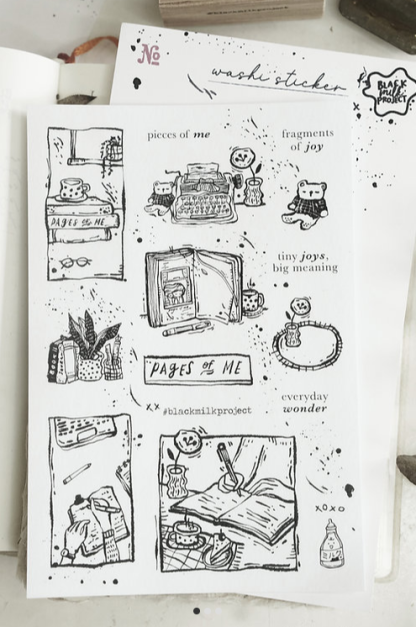 No
washi sticker
BLACK
milk
PROJECT
pieces of me
fragments
of joy
PAGES of ME
tiny joys,
big meaning
PAGES of ME
xx #blackmilkproject
everyday
wonder
xoxo